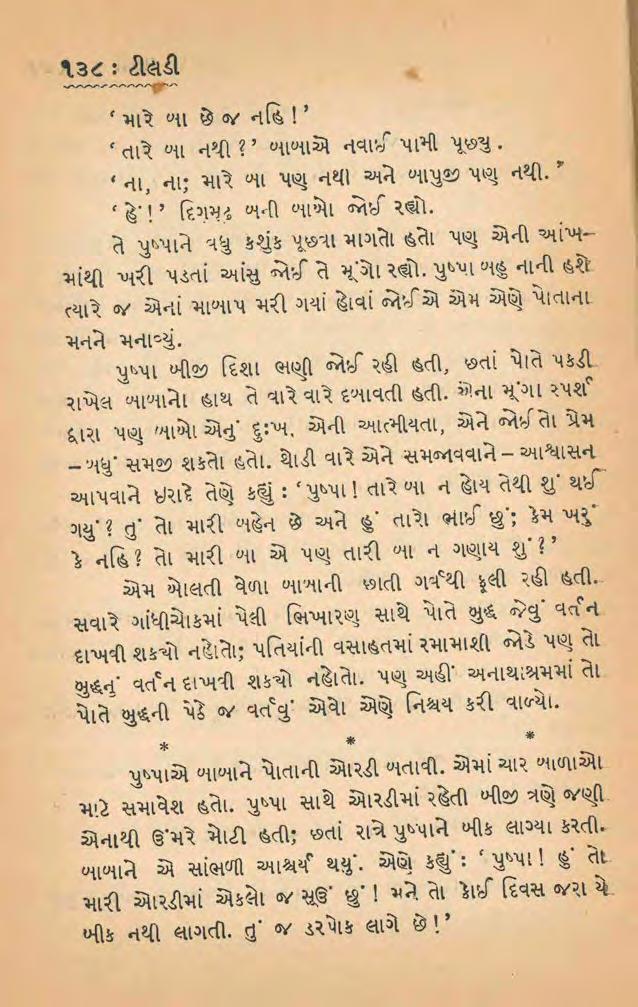 ૧૩૮ : ટીલડી
‘ મારે બા છે જ નહિ ! ’
‘ તારે બા નથી ? ’ બાબાએ નવાઈ પામી પૂછ્યુ .
‘ ના, ના; મારે બા પણ નથી અને બાપુજી પણ નથી. ’
‘ હેં ! ’ દિગ્મૂઢ બની બાબો જોઈ રહ્યો.
તે પુષ્પાને વધુ કશુંક પૂછવા માગતો હતો પણ એની આંખ–
માંથી ખરી પડતાં આંસુ જોઈ તે મૂંગો રહ્યો. પુષ્પા બહુ નાની હશે
ત્યારે જ એનાં માબાપ મરી ગયાં હોવાં જોઈએ એમ એણે પોતાના
મનને મનાવ્યું.
પુષ્પા બીજી દિશા ભણી જોઈ રહી હતી, છતાં પોતે પકડી
રાખેલ બાબાનો હાથ તે વારે વારે દબાવતી હતી. એના મૂંગા સ્પર્શ
દ્વારા પણ બાબો એનું દુઃખ, એની આત્મીયતા, એને જોઈતો પ્રેમ
– બધું સમજી શકતો હતો. થોડી વારે એને સમજાવવાને – આશ્વાસન
આપવાને ઇરાદે તેણે કહ્યું : ‘ પુષ્પા ! તારે બા ન હોય તેથી શું થઈ
ગયું ? તું તો મારી બહેન છે અને હું તારો ભાઈ છું; કેમ ખરું
કે નહિ ? તો મારી બા એ પણ તારી બા ન ગણાય શું ? ’
એમ બોલતી વેળા બાબાની છાતી ગર્વથી ફૂલી રહી હતી.
સવારે ગાંધીચોકમાં પેલી ભિખારણ સાથે પોતે બુદ્ધ જેવું વર્તન
દાખવી શક્યો નહોતો; પતિયાંની વસાહતમાં રમામાશી જોડે પણ તો
બુદ્ધનું વર્તન દાખવી શક્યો નહોતો. પણ અહીં અનાથાશ્રમમાં તો
પોતે બુદ્ધની પેઠે જ વર્તવું એવો એણે નિશ્ચય કરી વાળ્યો.
* * *
પુષ્પાએ બાબાને પોતાની ઓરડી બતાવી. એમાં ચાર બાળાઓ
માટે સમાવેશ હતો. પુષ્પા સાથે ઓરડીમાં રહેતી બીજી ત્રણે જણી
એનાથી ઉંમરે મોટી હતી; છતાં રાત્રે પુષ્પાને બીક લાગ્યા કરતી.
બાબાને એ સાંભળી આશ્ચર્ય થયું. એણે કહ્યું : ‘ પુષ્પા ! હું તો
મારી ઓરડીમાં એકલો જ સૂઉં છું ! મને તો કોઈ દિવસ જરા યે
બીક નથી લાગતી. તું જ ડરપોક લાગે છે ! ’